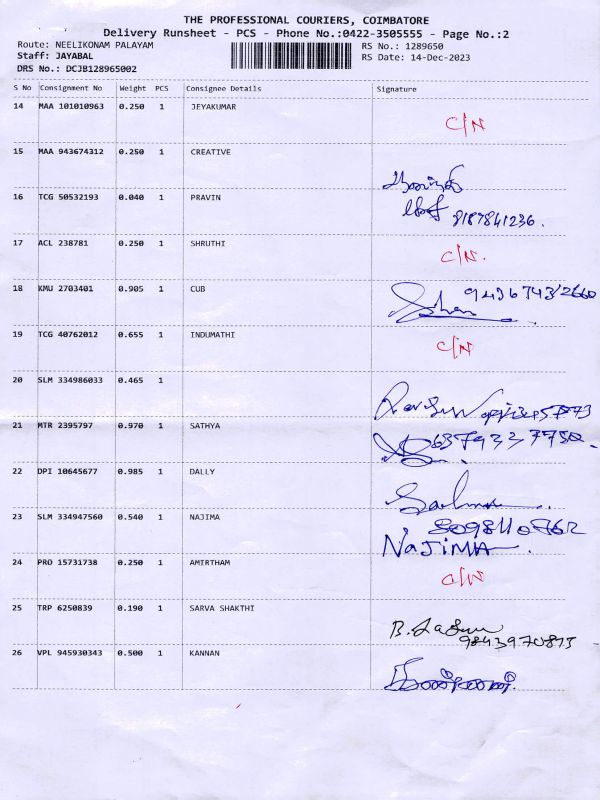 THE PROFESSIONAL COURIERS, COIMBATORE
Delivery Runsheet - PCS - Phone No.:0422-3505555 - Page No.:2
Route: NEELIKONAM PALAYAM RS No.: 1289650
Staff: JAYABAL RS Date: 14-Dec-2023
DRS No.: DCJB128965002
S No Consignment No Weight PCS Consignee Details Signature
14 MAA 101010963 0.250 1 JEYAKUMAR
C/N
15 MAA 943674312 0.250 1 CREATIVE
16 TCG 50532193 0.040 1 PRAVIN
8187841236.
17 ACL 238781 0.250 1 SHRUTHI
C/N.
18 KMU 2703401 0.905 1 CUB
19 TCG 40762012 0.655 1 INDUMATHI
C/N
20 SLM 334986033 0.465 1
21 MTR 2395797 0.970 1 SATHYA
22 DPI 10645677 0.985 1 DALLY
23 SLM 334947560 0.540 1 NAJIMA
NAJIMA
24 PRO 15731738 0.250 1 AMIRTHAM
C/N
25 TRP 6250839 0.190 1 SARVA SHAKTHI
26 VPL 945930343 0.500 1 KANNAN